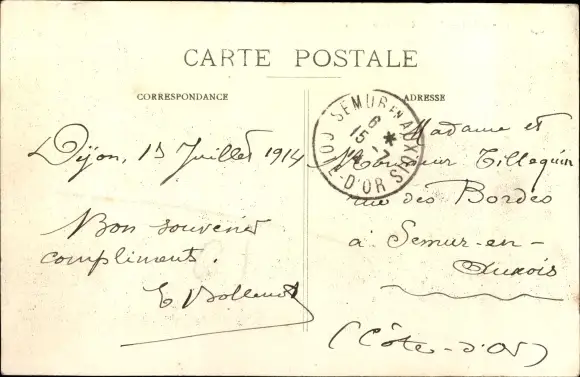 CARTE POSTALE
CORRESPONDANCE
Dijon, 15 Juillet 1914
Bon souvenir
compliments.
E. Bollenot
ADRESSE
Madame et
Monsieur Tilloquin
rue des Bordes
à Semur-en-
Auxois
(Côte-d'Or)
SEMUR EN AUXOIS
COTE-D'OR
6 *
15-7
14